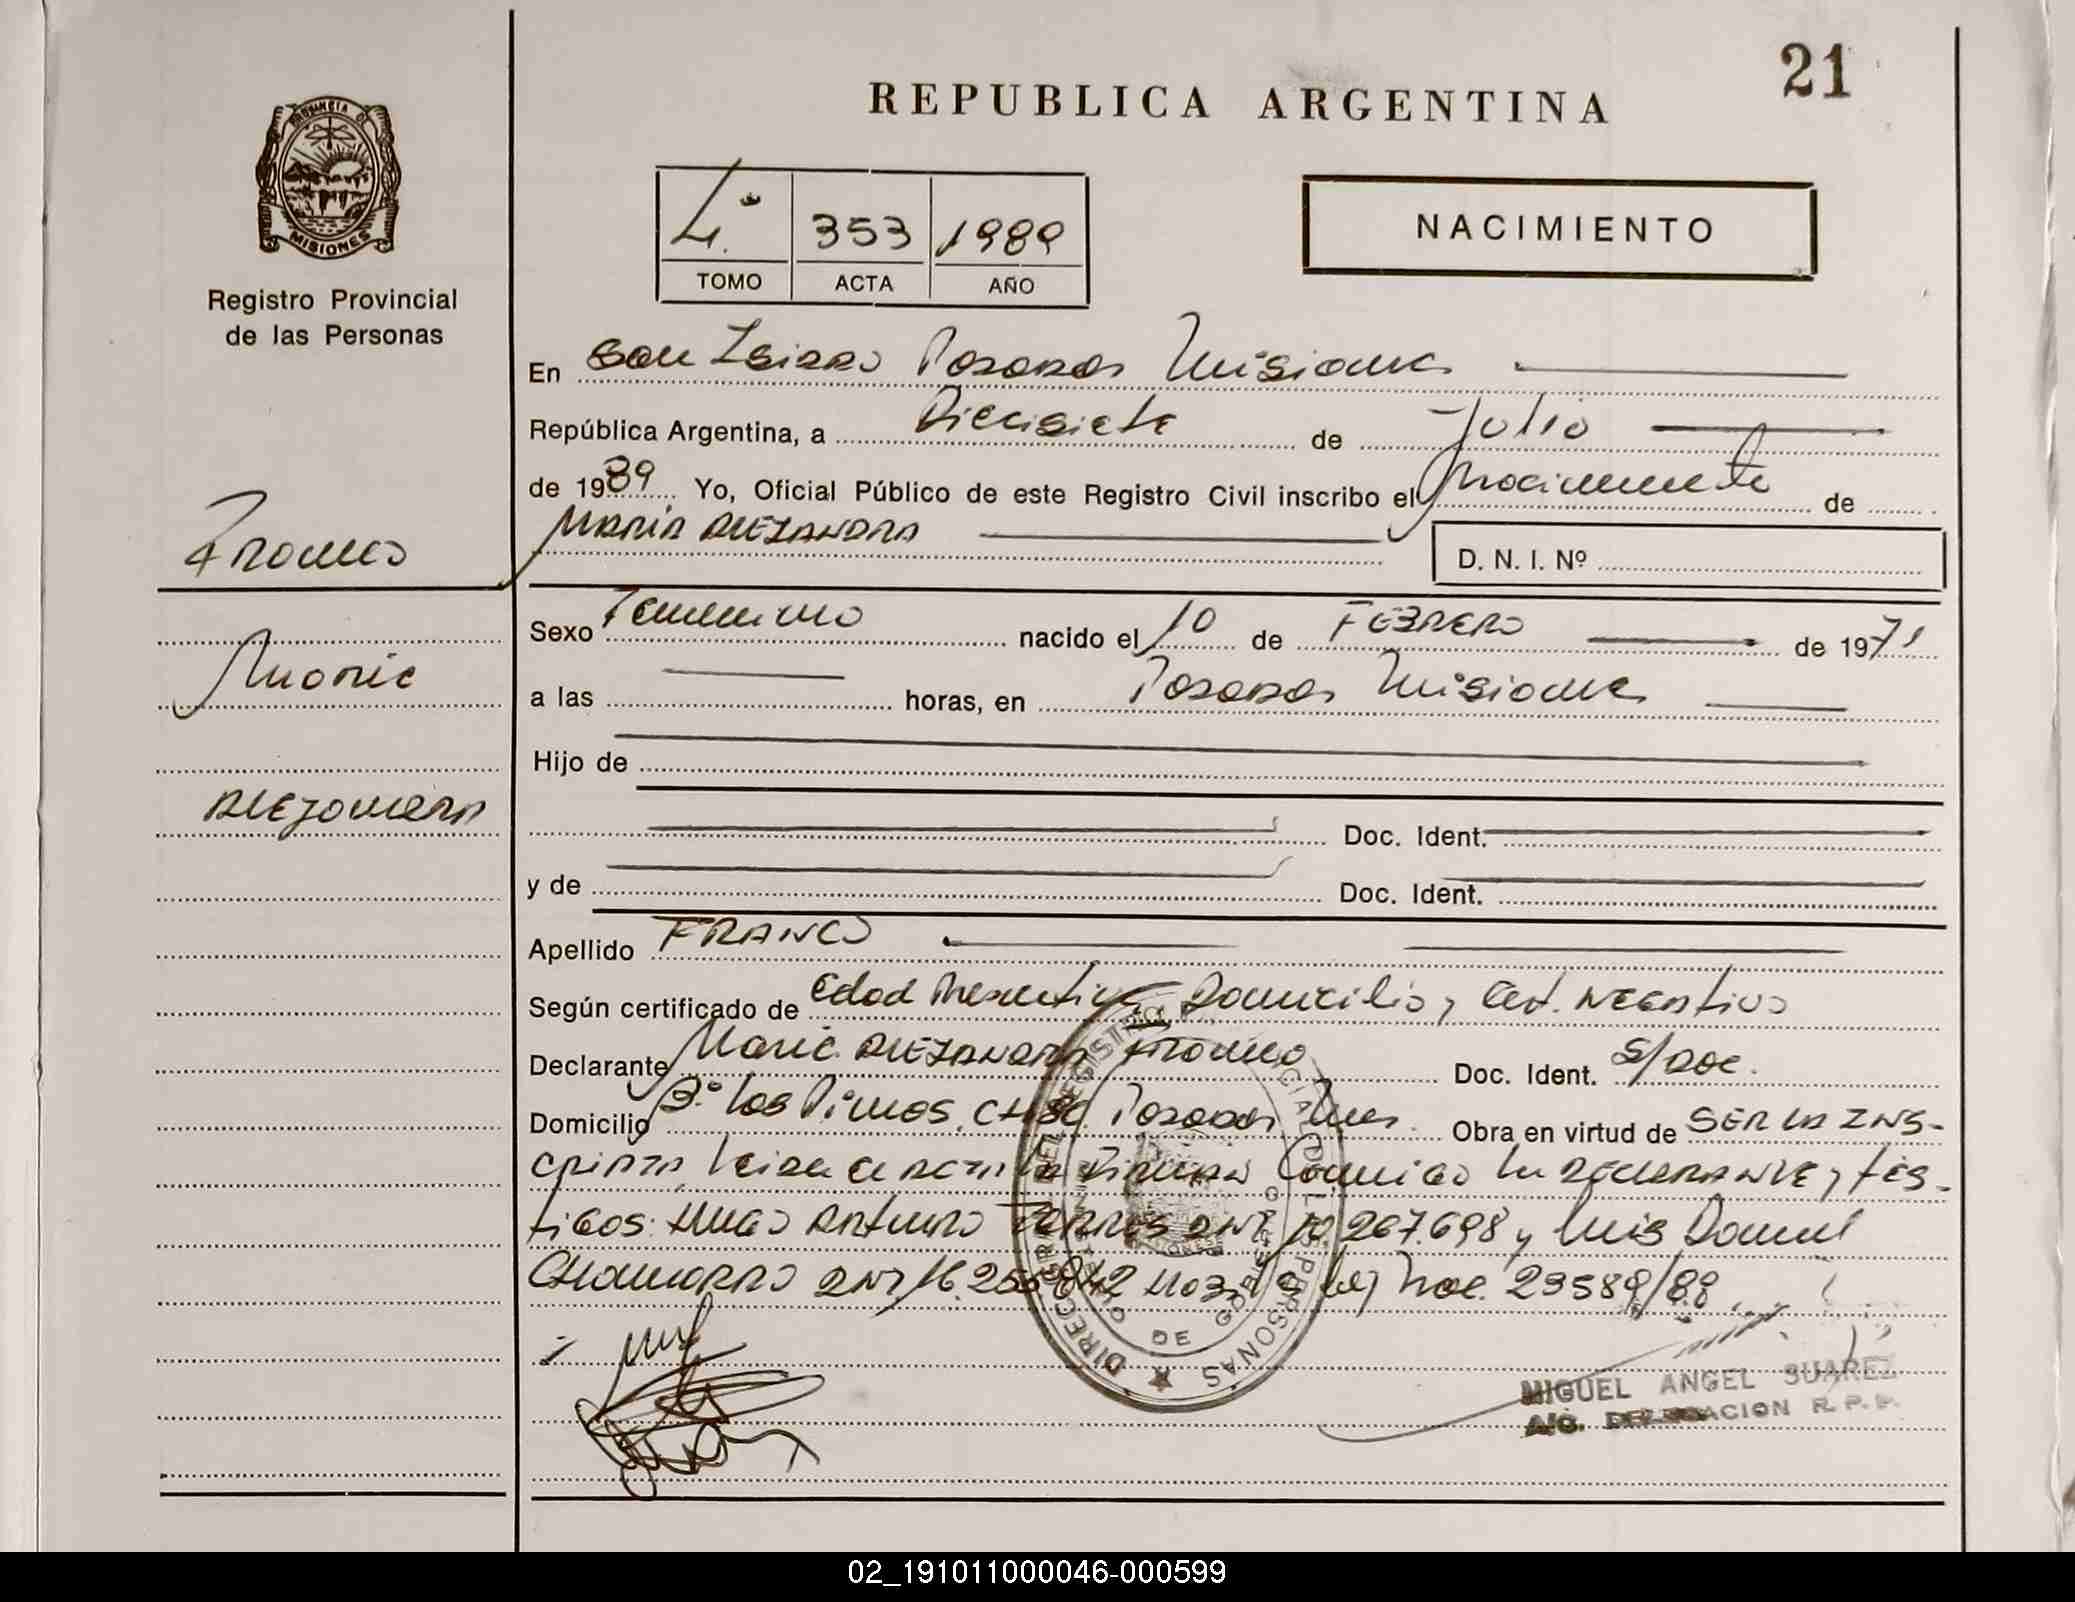 21
REPUBLICA ARGENTINA
PROVINCIA DE
MISIONES
Registro Provincial
de las Personas
4º 353 1989
TOMO ACTA AÑO
NACIMIENTO
En San Isidro Posadas Misiones
República Argentina, a Diecisiete de Julio
de 1989 Yo, Oficial Público de este Registro Civil inscribo el Nacimiento de
MARIA ALEJANDRA
D. N. I. Nº
Franco
Maria
Alejandra
Sexo Femenino nacido el 10 de FEBRERO de 1971
a las horas, en Posadas Misiones
Hijo de
Doc. Ident.
y de Doc. Ident.
Apellido FRANCO
Según certificado de Edad Domicilio y Cert. Negativo
Declarante Maria ALEJANDRA Franco Doc. Ident. S/Doc.
Domicilio Bº Los Pinos, Posadas Mnes. Obra en virtud de SER LA INS-
CRIPTA, Leida el ACTA la Firman Conmigo la DECLARANTE y Tes-
tigos: HUGO ARTURO TORRES DNI 10.267.698 y Luis Daniel
CHAMORRO DNI 16. 842 23589/89
DE GOBIERNO
MIGUEL ANGEL SUAREZ
A/C. DELEGACION R. P. P.
02_191011000046-000599